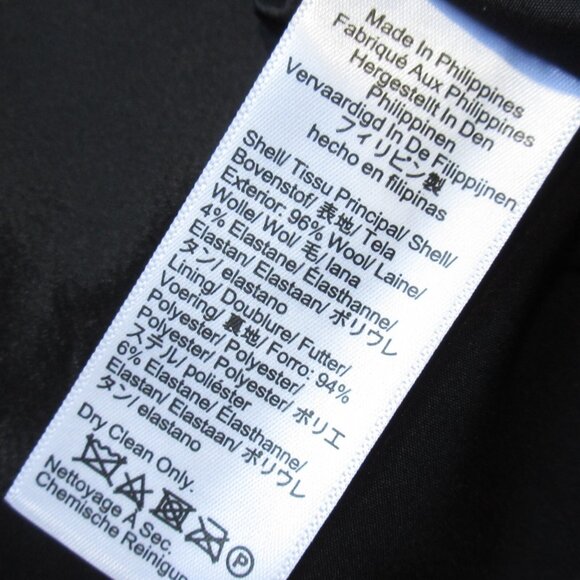 Made In Philippines
Fabriqué Aux Philippines
Hergestellt In Den
Philippinen
Vervaardigd In De Filippijnen
フィリピン製
hecho en filipinas
Shell/ Tissu Principal/ Shell/
Bovenstof/ 表地/ Tela
Exterior: 96% Wool/ Laine/
Wolle/ Wol/ 毛/ lana
4% Elastane/ Élasthanne/
Elastan/ Elastaan/ ポリウレ
タン/ elastano
Lining/ Doublure/ Futter/
Voering/ 裏地/ Forro: 94%
Polyester/ Polyester/
Polyester/ Polyester/ ポリエ
ステル/ poliéster
6% Elastane/ Élasthanne/
Elastan/ Elastaan/ ポリウレ
タン/ elastano
Dry Clean Only.
P
Nettoyage À Sec.
Chemische Reinigun